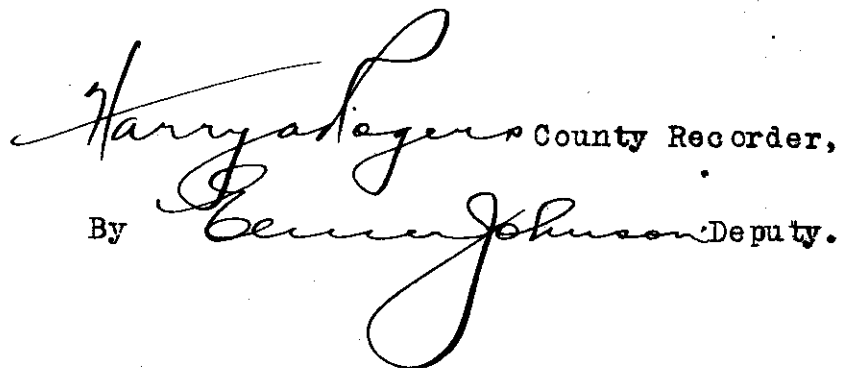 Harry A Rogers County Recorder,
By Elmer Johnson Deputy.